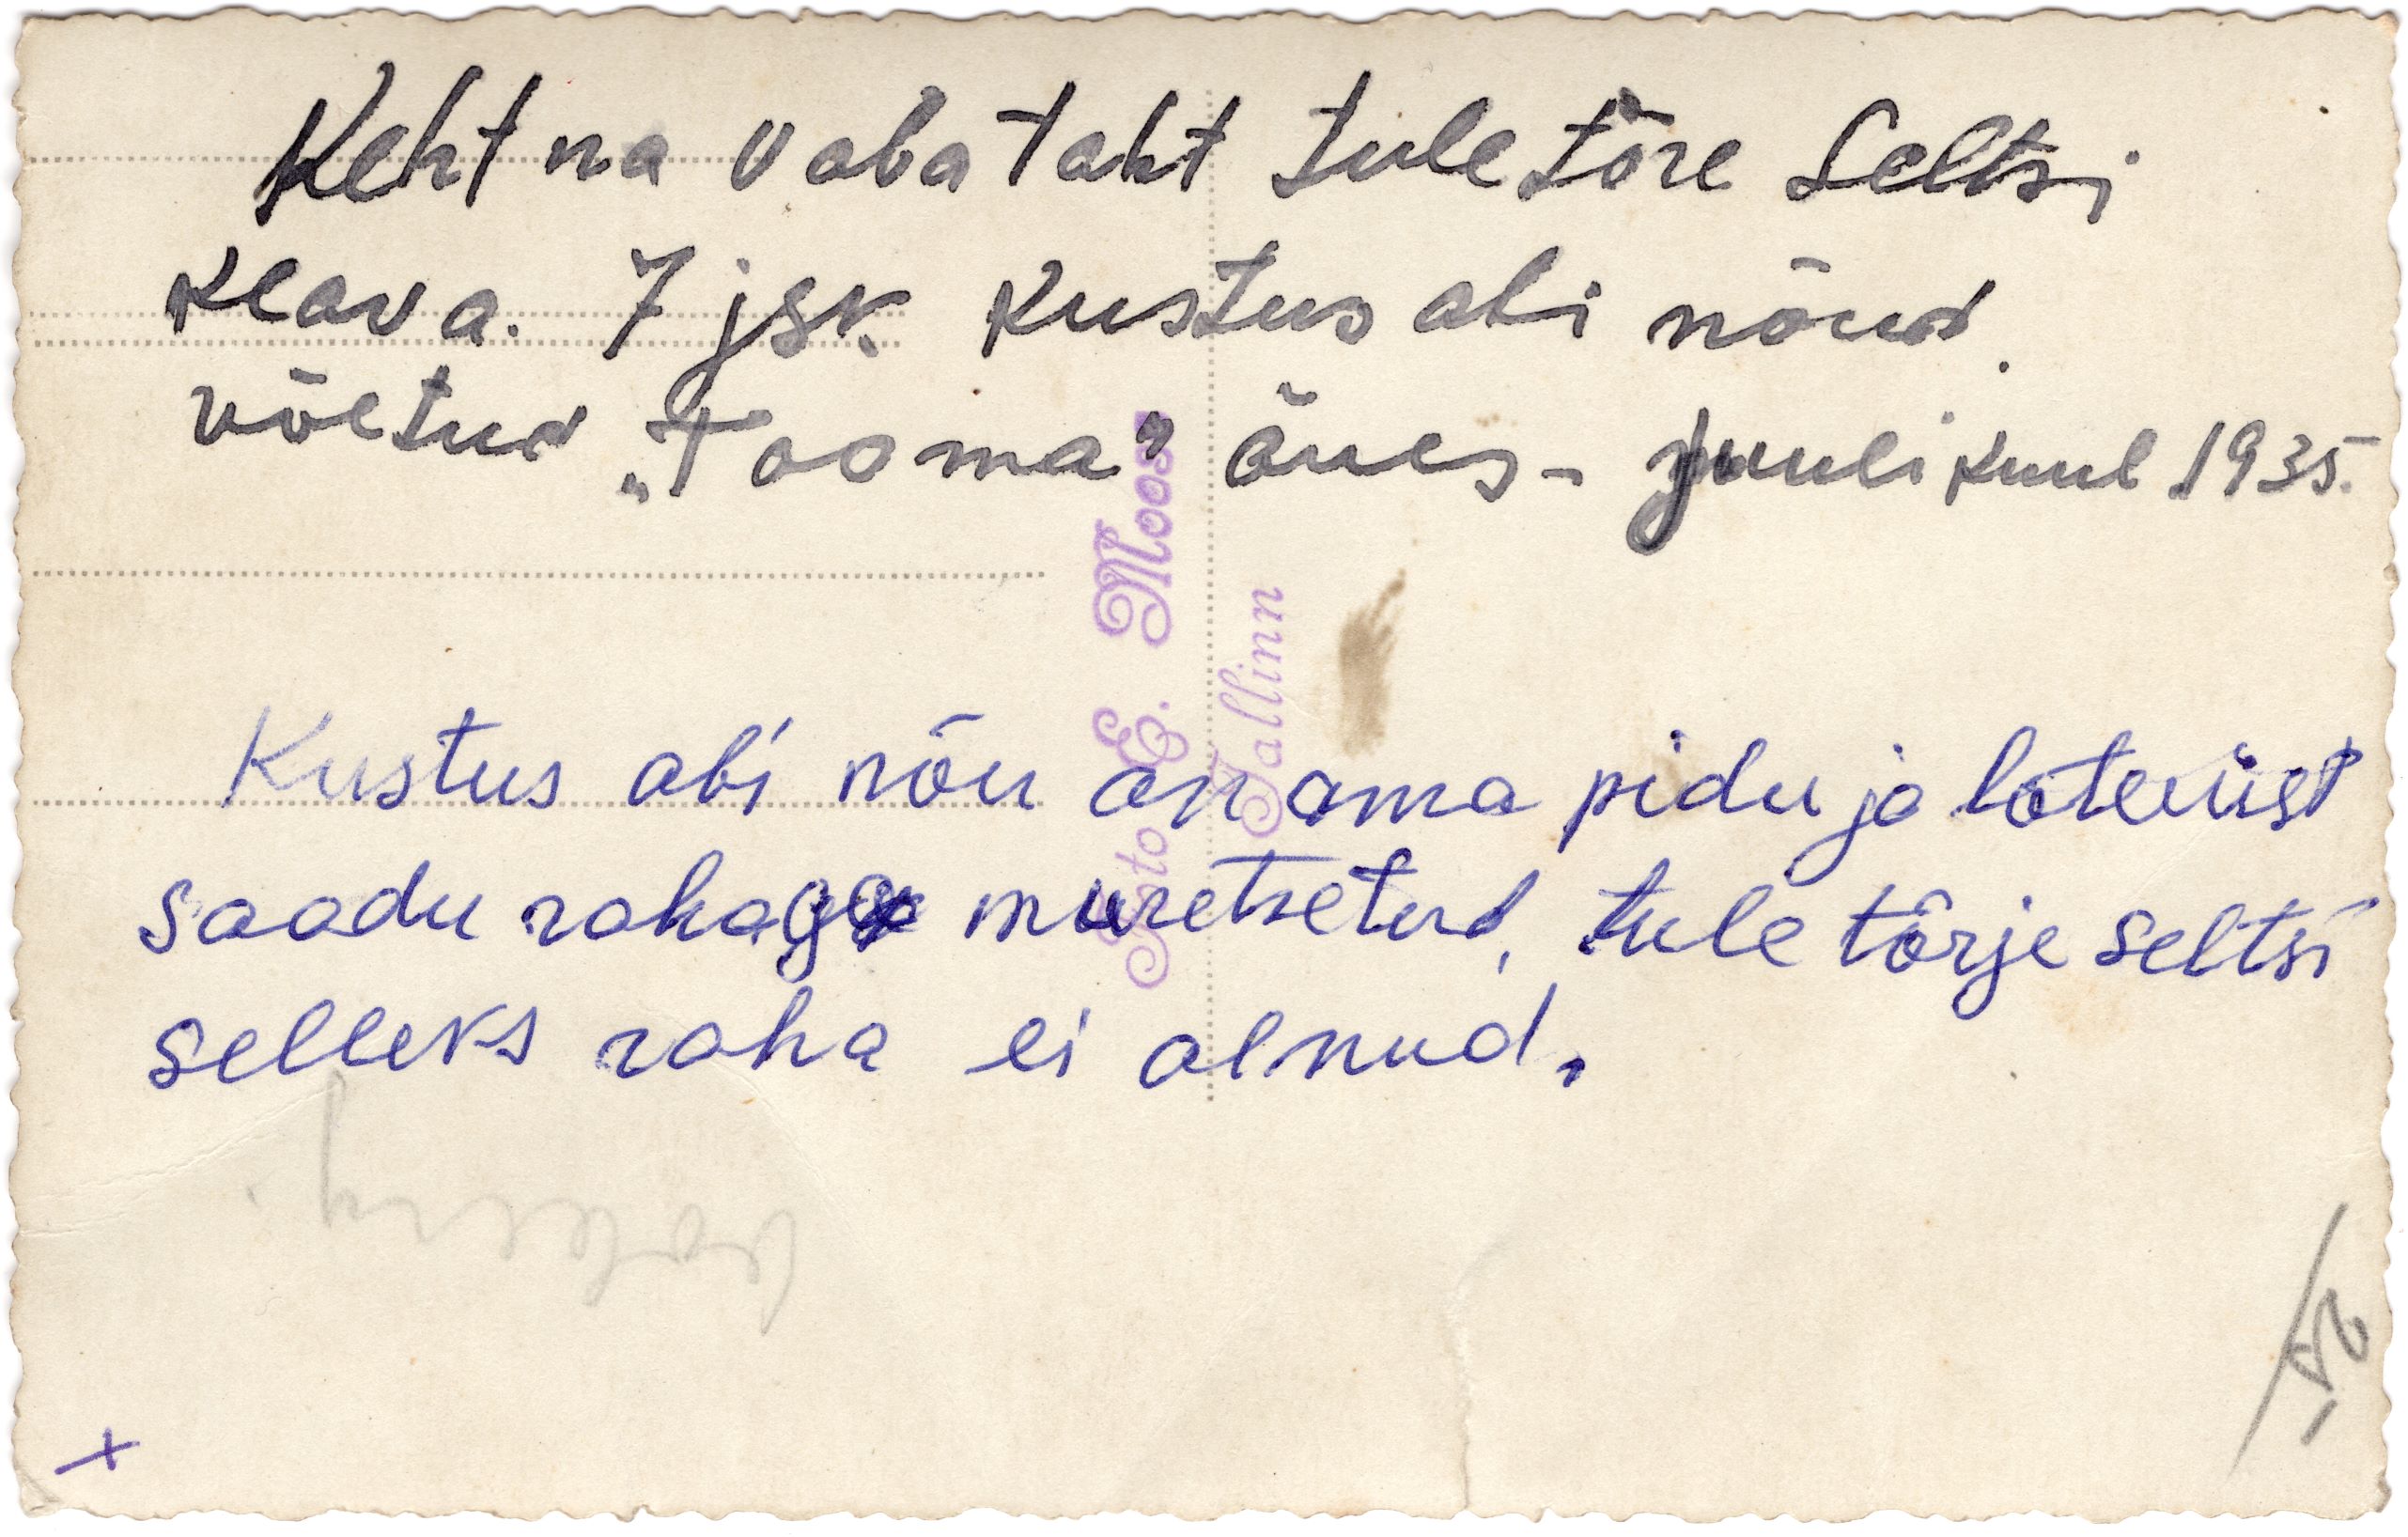 Kehtna vabataht tuletõre Seltsi
Keava. 7 jsk. Kustus abi nõud.
võetud „Tooma” õues - juulikuul 1935.
Foto E. Moos
Tallinn
Kustus abi nõu on oma pidu ja loteriist
saadu rahaga muretsetud, tuletõrje seltsi
selleks raha ei olnud.
+